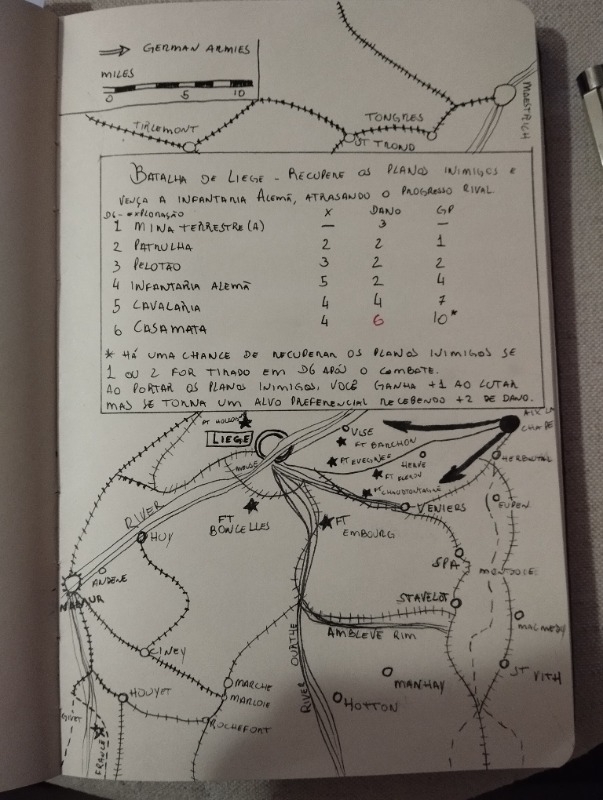 GERMAN ARMIES
MILES
0 5 10
TIRLEMONT
TONGRES
ST TROND
MAESTRICH
BATALHA DE LIEGE - RECUPERE OS PLANOS INIMIGOS E
VENÇA A INFANTARIA ALEMÃ, ATRASANDO O PROGRESSO RIVAL.
D6 - EXPLORAÇÃO X DANO GP
1 MINA TERRESTRE(A) — 3 —
2 PATRULHA 2 2 1
3 PELOTÃO 3 2 2
4 INFANTARIA ALEMÃ 5 2 4
5 CAVALARIA 4 4 7
6 CASAMATA 4 6 10*
* HÁ UMA CHANCE DE RECUPERAR OS PLANOS INIMIGOS SE
1 OU 2 FOR TIRADO EM D6 APÓS O COMBATE.
AO PORTAR OS PLANOS INIMIGOS, VOCÊ GANHA +1 AO LUTAR
MAS SE TORNA UM ALVO PREFERENCIAL RECEBENDO +2 DE DANO.
AIX LA
FT
LIEGE
VISE
FT BARCHON
FT EVEGNEE
HERVE
FT
FT CHAUDFONTAINE
VERVIERS
EUPEN
RIVER
FT
BONCELLES
FT
EMBOURG
HUY
SPA
ANDENE
NAMUR
STAVELOT
MALMEDY
AMBLEVE RIM
CINEY
RIVER OURTHE
MANHAY
ST VITH
MARCHE
MARLOIE
HOUYET
HOTTON
ROCHEFORT
GIVET
FRANCE